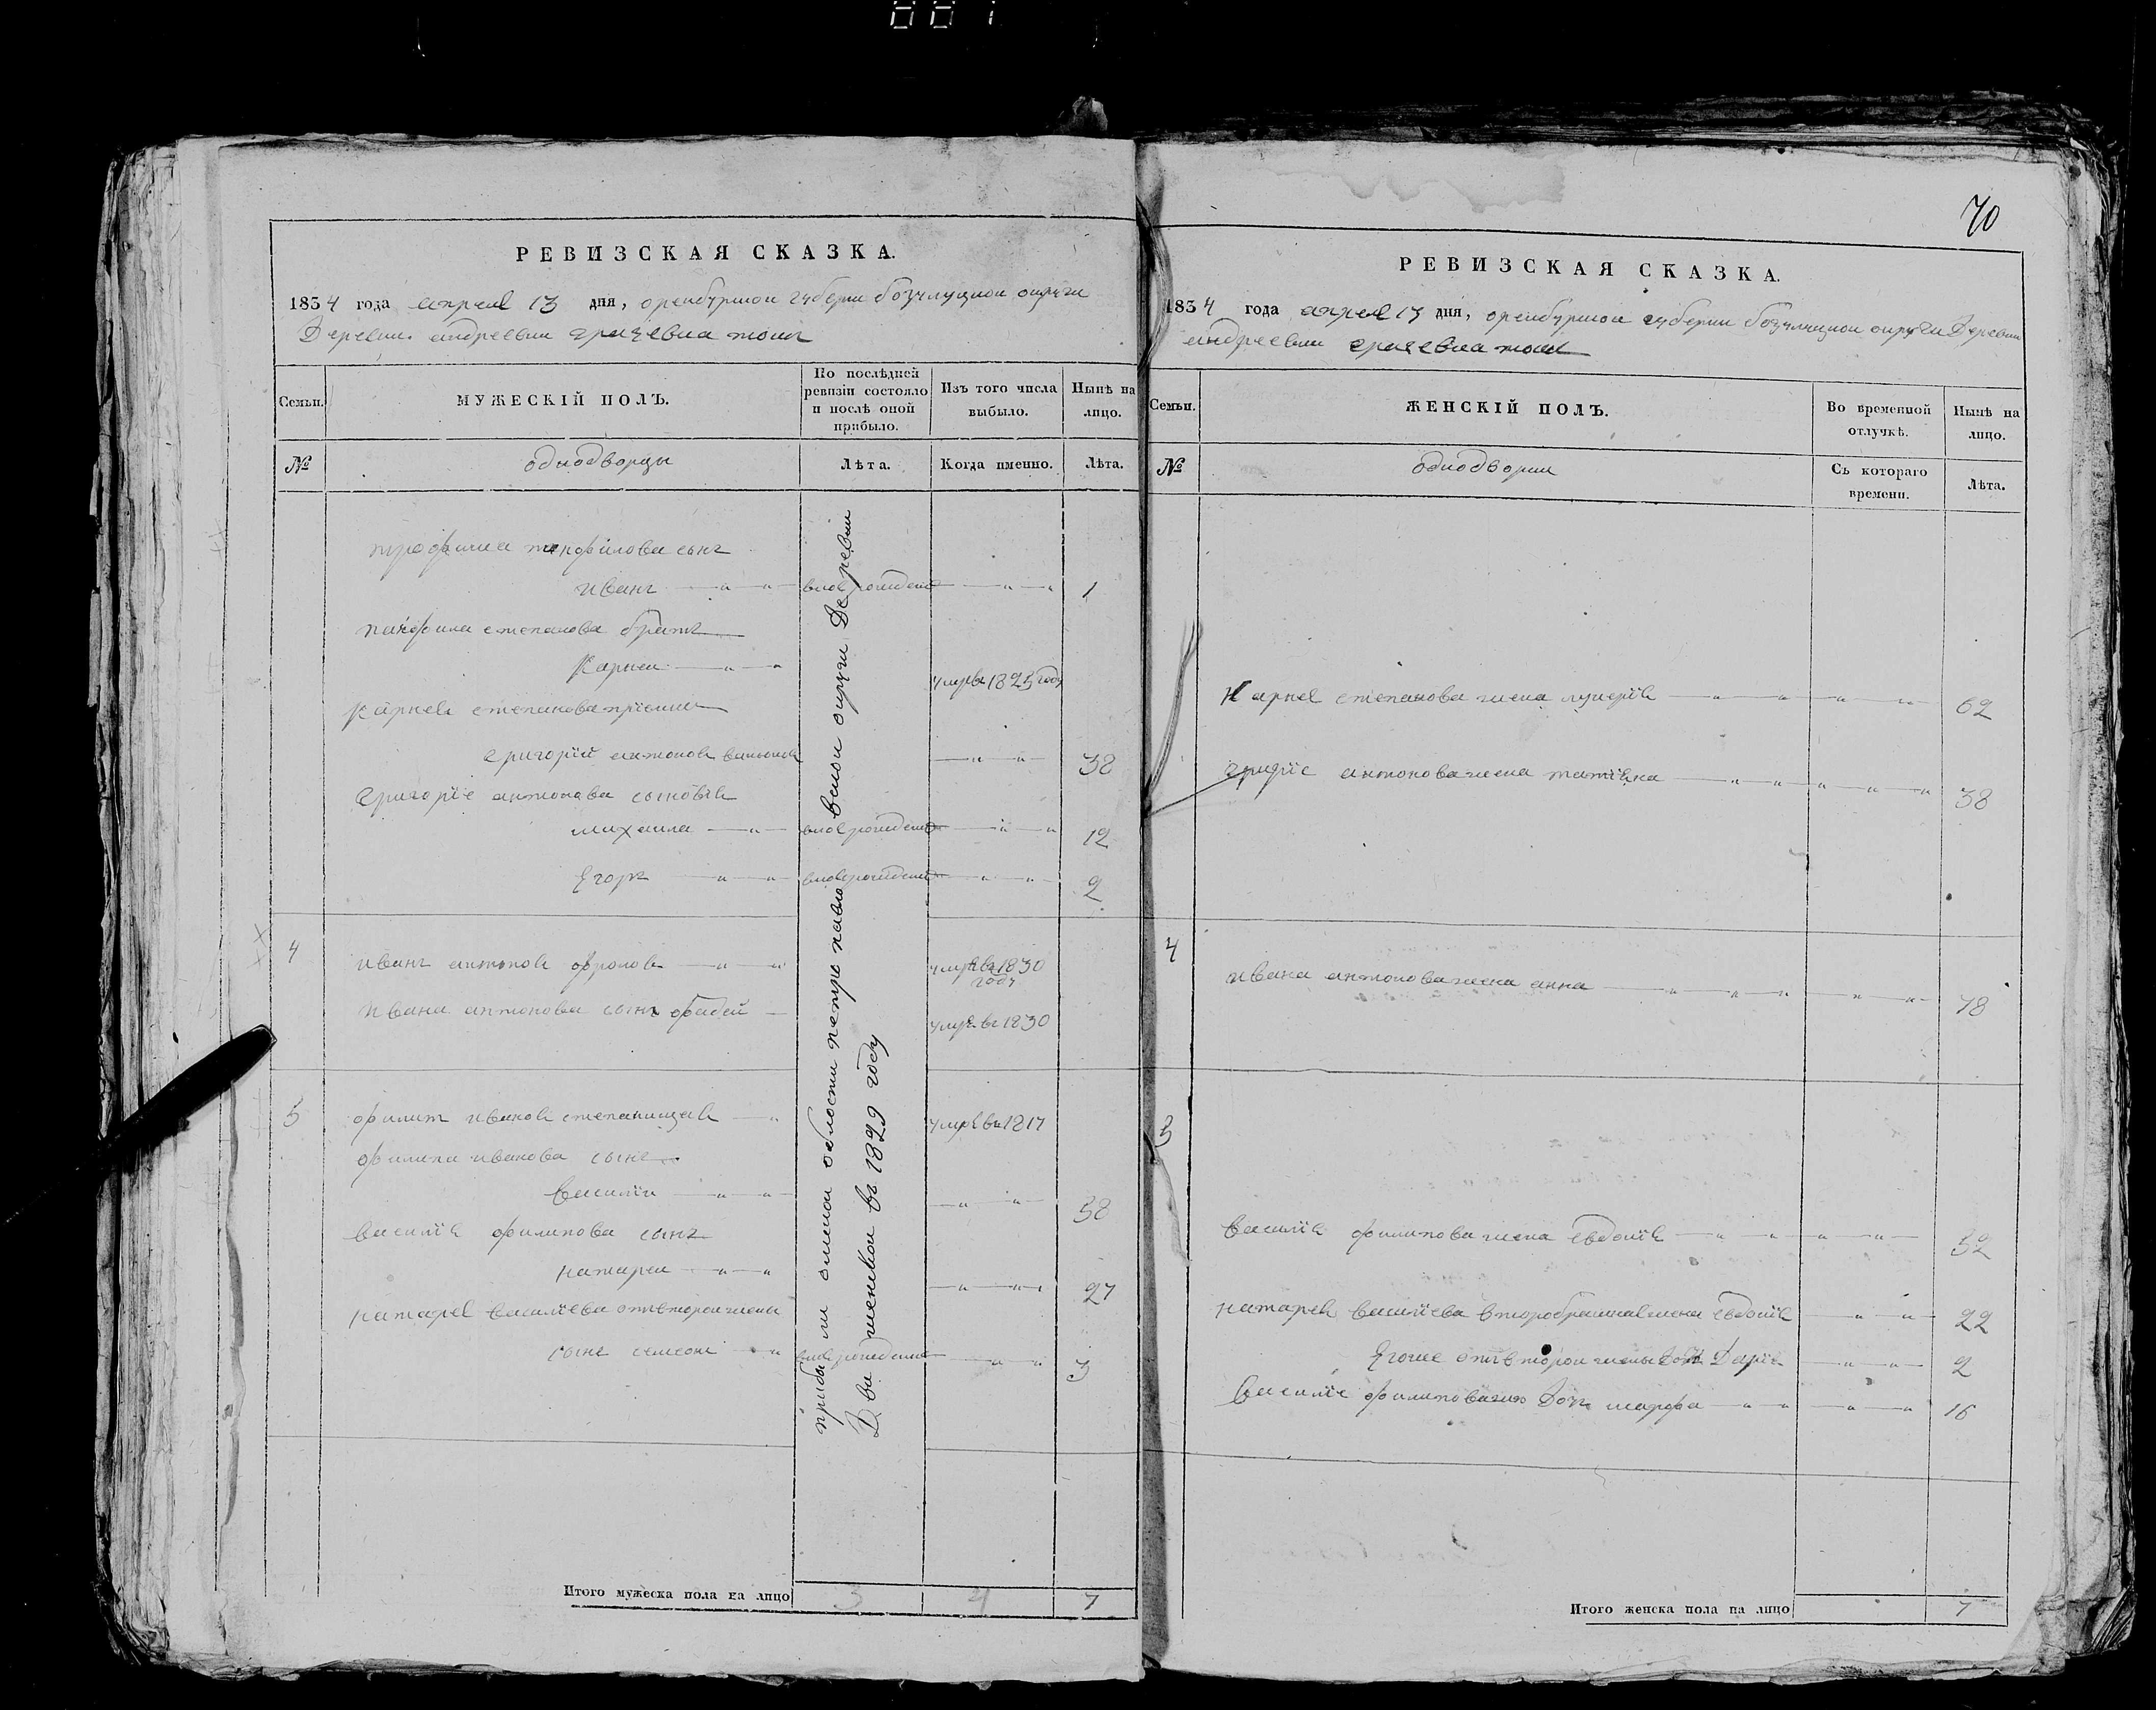 001
РЕВИЗСКАЯ СКАЗКА.
1834 года апреля 13 дня, оренбурской губерни бозулуцкои округи
Деревни андреевки грачевка тожъ
Семьи.
МУЖЕСКІЙ ПОЛЪ.
По послѣдней ревизіи состояло и послѣ оной прибыло.
Изъ того числа выбыло.
Нынѣ на лицо.
№
однодворцы
Лѣта.
Когда именно.
Лѣта.
трофима панфилова сынъ
иванъ вновь рожденъ 1
панфила степанова братъ
Карнеи умре въ 1825 году
Карнея степанова приемышъ
григорий антоновъ 38
Григорие антонова сыновья
михаила вновь рожденъ 12
Егоръ вновь рожденъ 2
4
иванъ антоновъ фроловъ умре въ 1830 году
Ивана антонова сынъ фадей умре въ 1830
5
филипъ ивановъ степанищевъ умре въ 1817
филипа иванова сынъ
василии 58
василия филипова сынъ
назареи 27
назарея василиева от второи жены
сынъ семеонъ вновь рожденъ 3
прибыли омскои области петропавловскои округи Деревни
в 1829 году
Итого мужеска пола на лицо 3 4 7
70
РЕВИЗСКАЯ СКАЗКА.
1834 года апреля 13 дня, оренбурской губернии бозулуцкои округи Деревни
андреевки грачевка тожъ
Семьи.
ЖЕНСКІЙ ПОЛЪ.
Во временной отлучкѣ.
Нынѣ на лицо.
№
однодворки
Съ котораго времени.
Лѣта.
Карнея степанова жена лукерия 62
григорие антонова жена татияна 38
4
ивана антонова жена анна 78
5
василия филипова жена евдокия 52
назарея василиева второбрачная жена евдокия 22
Егоже от второи жены дочь Дария 2
Василие филипова дочь марфа 16
Итого женска пола на лицо 7